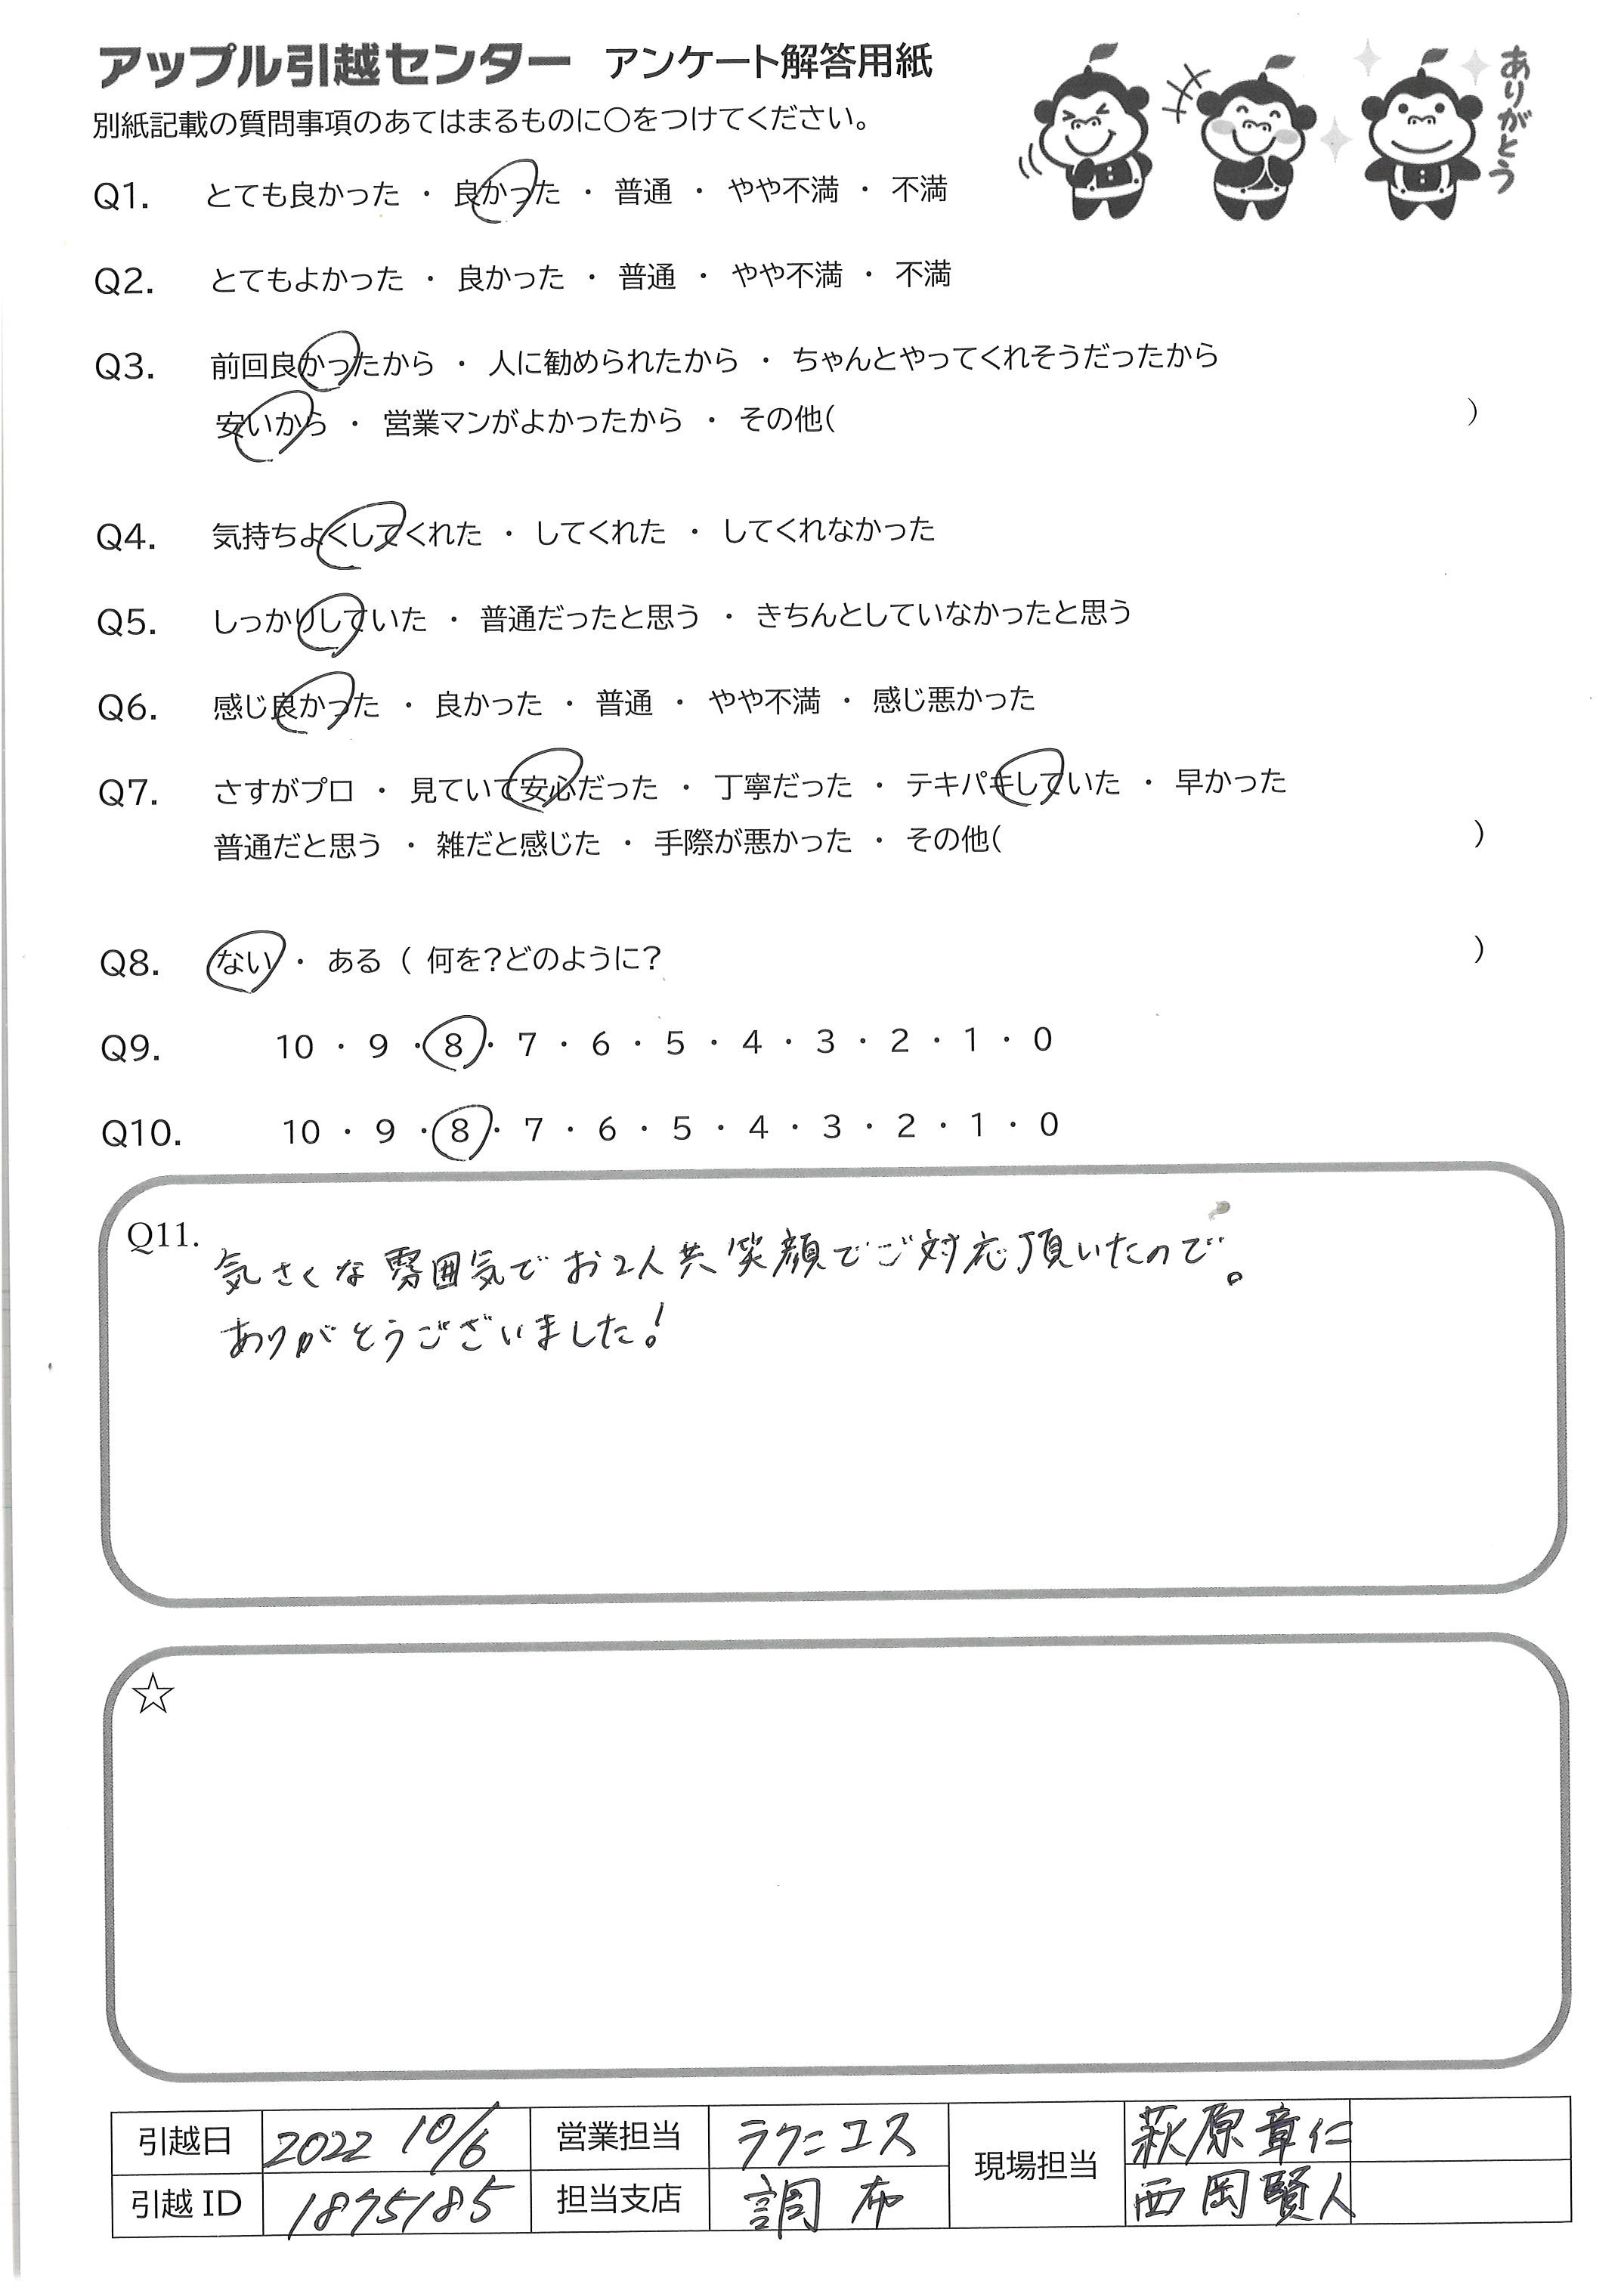 アップル引越センター アンケート解答用紙
ありがとう
別紙記載の質問事項のあてはまるものに〇をつけてください。
Q1. とても良かった ・ 良かった ・ 普通 ・ やや不満 ・ 不満
Q2. とてもよかった ・ 良かった ・ 普通 ・ やや不満 ・ 不満
Q3. 前回良かったから ・ 人に勧められたから ・ ちゃんとやってくれそうだったから
安いから ・ 営業マンがよかったから ・ その他( )
Q4. 気持ちよくしてくれた ・ してくれた ・ してくれなかった
Q5. しっかりしていた ・ 普通だったと思う ・ きちんとしていなかったと思う
Q6. 感じ良かった ・ 良かった ・ 普通 ・ やや不満 ・ 感じ悪かった
Q7. さすがプロ ・ 見ていて安心だった ・ 丁寧だった ・ テキパキしていた ・ 早かった
普通だと思う ・ 雑だと感じた ・ 手際が悪かった ・ その他( )
Q8. ない ・ ある ( 何を?どのように? )
Q9. 10 ・ 9 ・ 8 ・ 7 ・ 6 ・ 5 ・ 4 ・ 3 ・ 2 ・ 1 ・ 0
Q10. 10 ・ 9 ・ 8 ・ 7 ・ 6 ・ 5 ・ 4 ・ 3 ・ 2 ・ 1 ・ 0
Q11. 気さくな雰囲気でお2人共笑顔でご対応頂いたので。
ありがとうございました!
☆
引越日 2022 10/6 営業担当 ラクニコス 現場担当 萩原章仁
引越 ID 1875185 担当支店 調布 西岡賢人